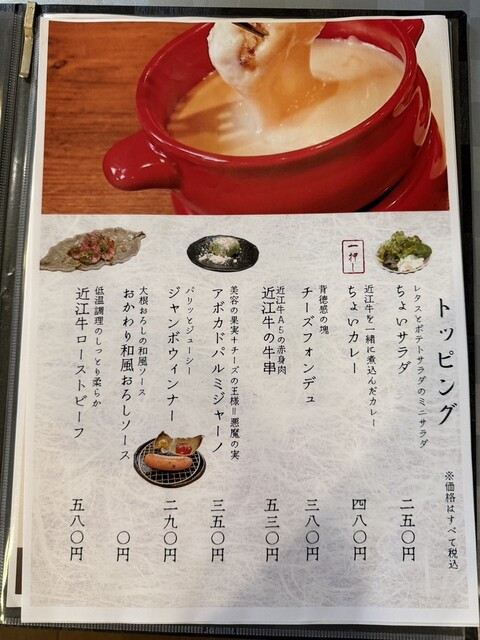 トッピング
※価格はすべて税込
レタスとポテトサラダのミニサラダ
ちょいサラダ
二五〇円
一押し
近江牛を一緒に煮込んだカレー
ちょいカレー
四八〇円
背徳感の塊
チーズフォンデュ
三八〇円
近江牛A5の赤身肉
近江牛の牛串
五三〇円
美容の果実+チーズの王様=悪魔の実
アボカドパルミジャーノ
三五〇円
パリッとジューシー
ジャンボウィンナー
二九〇円
大根おろしの和風ソース
おかわり和風おろしソース
〇円
低温調理のしっとり柔らか
近江牛ローストビーフ
五八〇円